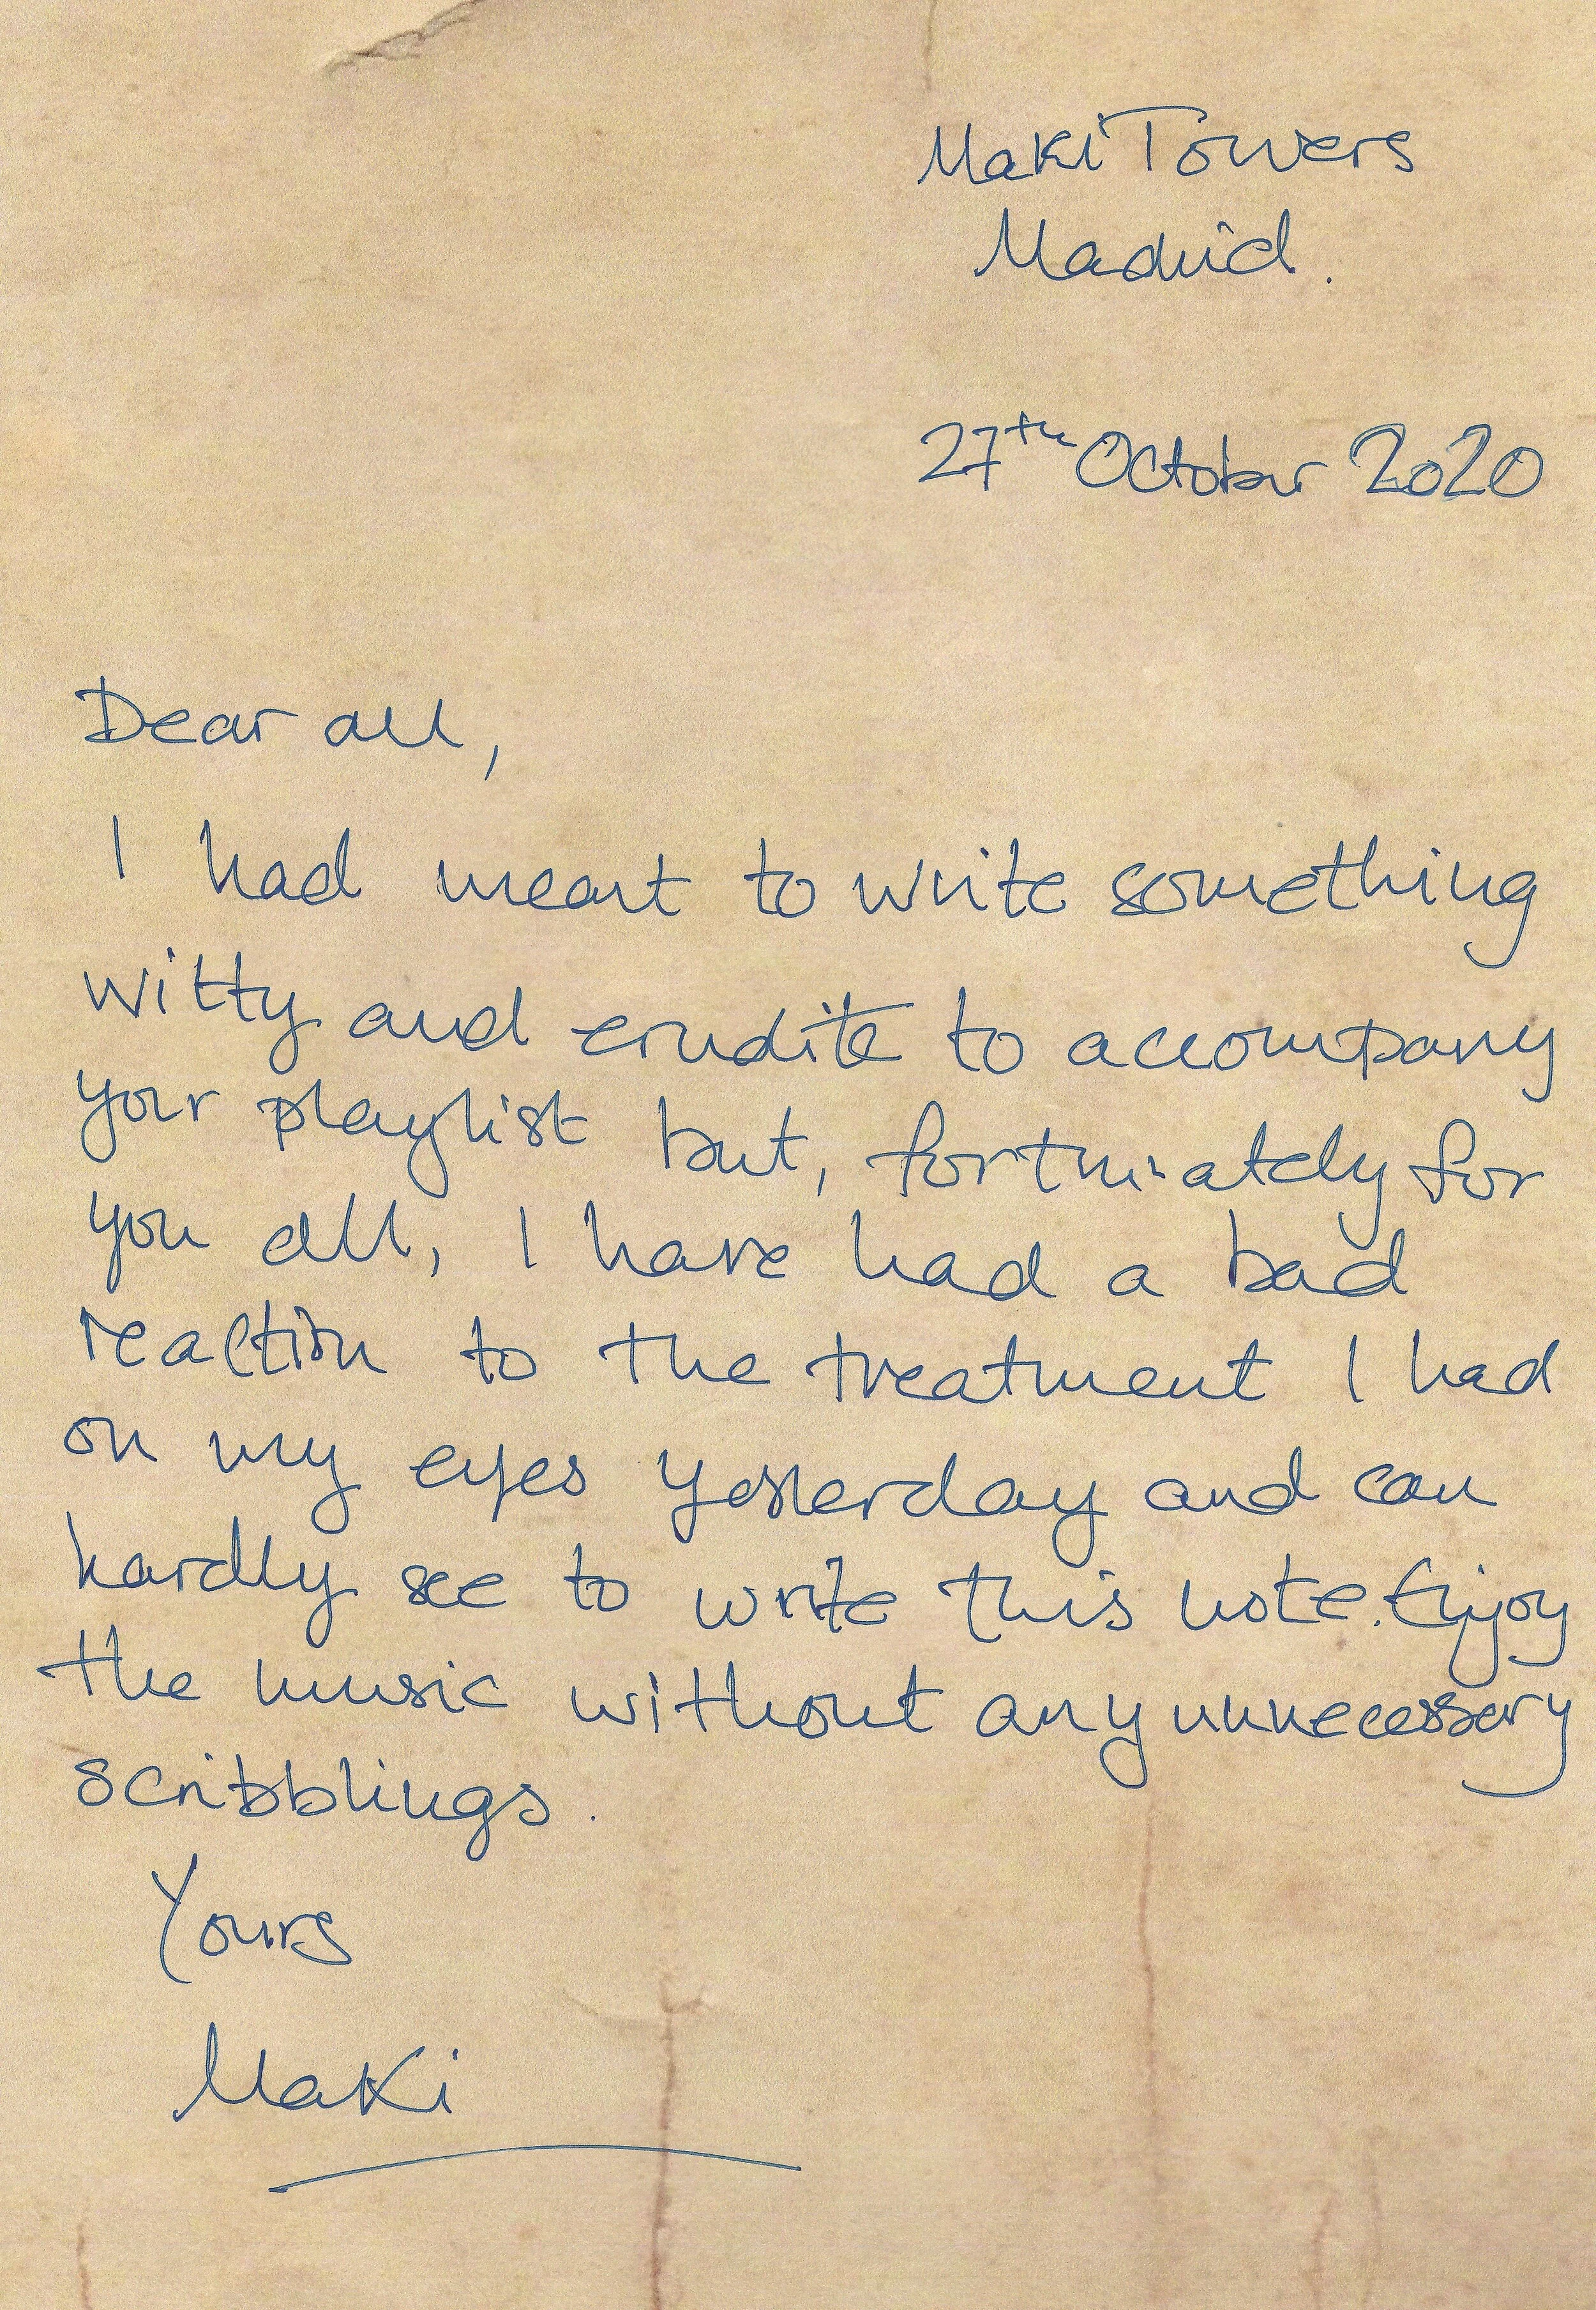 Maki Towers
Madrid.
27th October 2020
Dear all,
I had meant to write something
witty and erudite to accompany
your playlist but, fortunately for
you all, I have had a bad
reaction to the treatment I had
on my eyes yesterday and can
hardly see to write this note. Enjoy
the music without any unnecessary
scribblings.
Yours
Maki